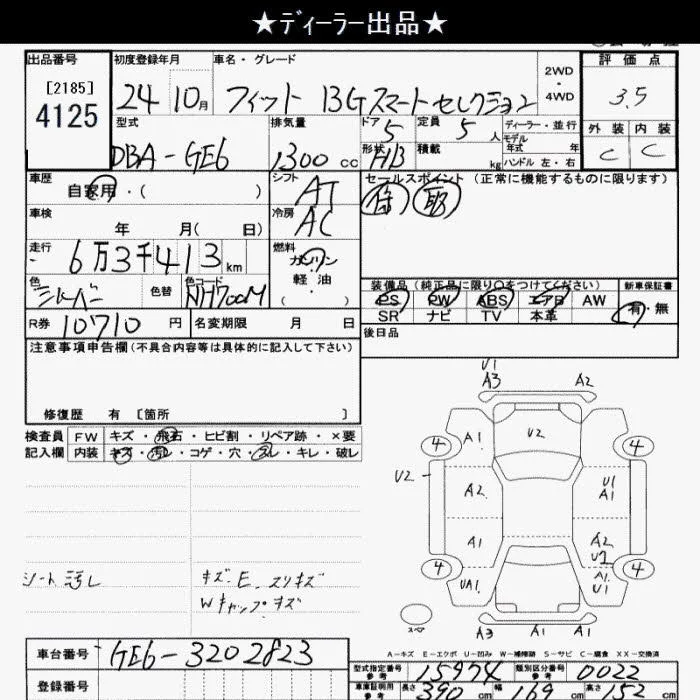 ★ディーラー出品★
出品番号 初度登録年月 車名・グレード 2WD・4WD 評価点
[2185]
4125
24 10月 フィット 13Gスマートセレクション 3.5
型式 排気量 ドア 5 定員 5人 ディーラー・並行 外装 内装
DBA-GE6 1300cc 形状 HB 積載 kg モデル年式 年式 ハンドル 左・右 C C
車歴 自家用・( ) シフト AT セールスポイント(正常に機能するものに限ります)
車検 年 月( 日) 冷房 AC 保 取
走行 6万3千413km 燃料 ガソリン・軽油・( )
色 シルバー 色替 色コード NH700M 装備品(純正品に限り○をつけてください) 新車保証書
PS PW ABS エアB AW 有・無
SR ナビ TV 本革
R券 10710円 名変期限 月 日 後日品
注意事項申告欄(不具合内容等は具体的に記入して下さい)
修復歴 有 [箇所 ]
検査員 FW キズ・飛石・ヒビ割・リペア跡・×要
記入欄 内装 キズ・汚レ・コゲ・穴・スレ・キレ・破レ
シート汚し キズ、E、スリキズ
Wキャップキズ
U1
A3 A2
4 A1 U2 4
U2 A2 U1
A1
A1 A2
U2
4 UA1 A1 4
U1
スペア A3 A1 A1 A2
A-キズ E-エクボ U-凹み W-補修跡 S-サビ C-腐食 XX-交換済
車台番号 GE6-3202823 型式指定番号 参考 15974 類別区分番号 参考 0022
登録番号 車庫証明用 参考 長さ 390cm 幅 169cm 高さ 152cm